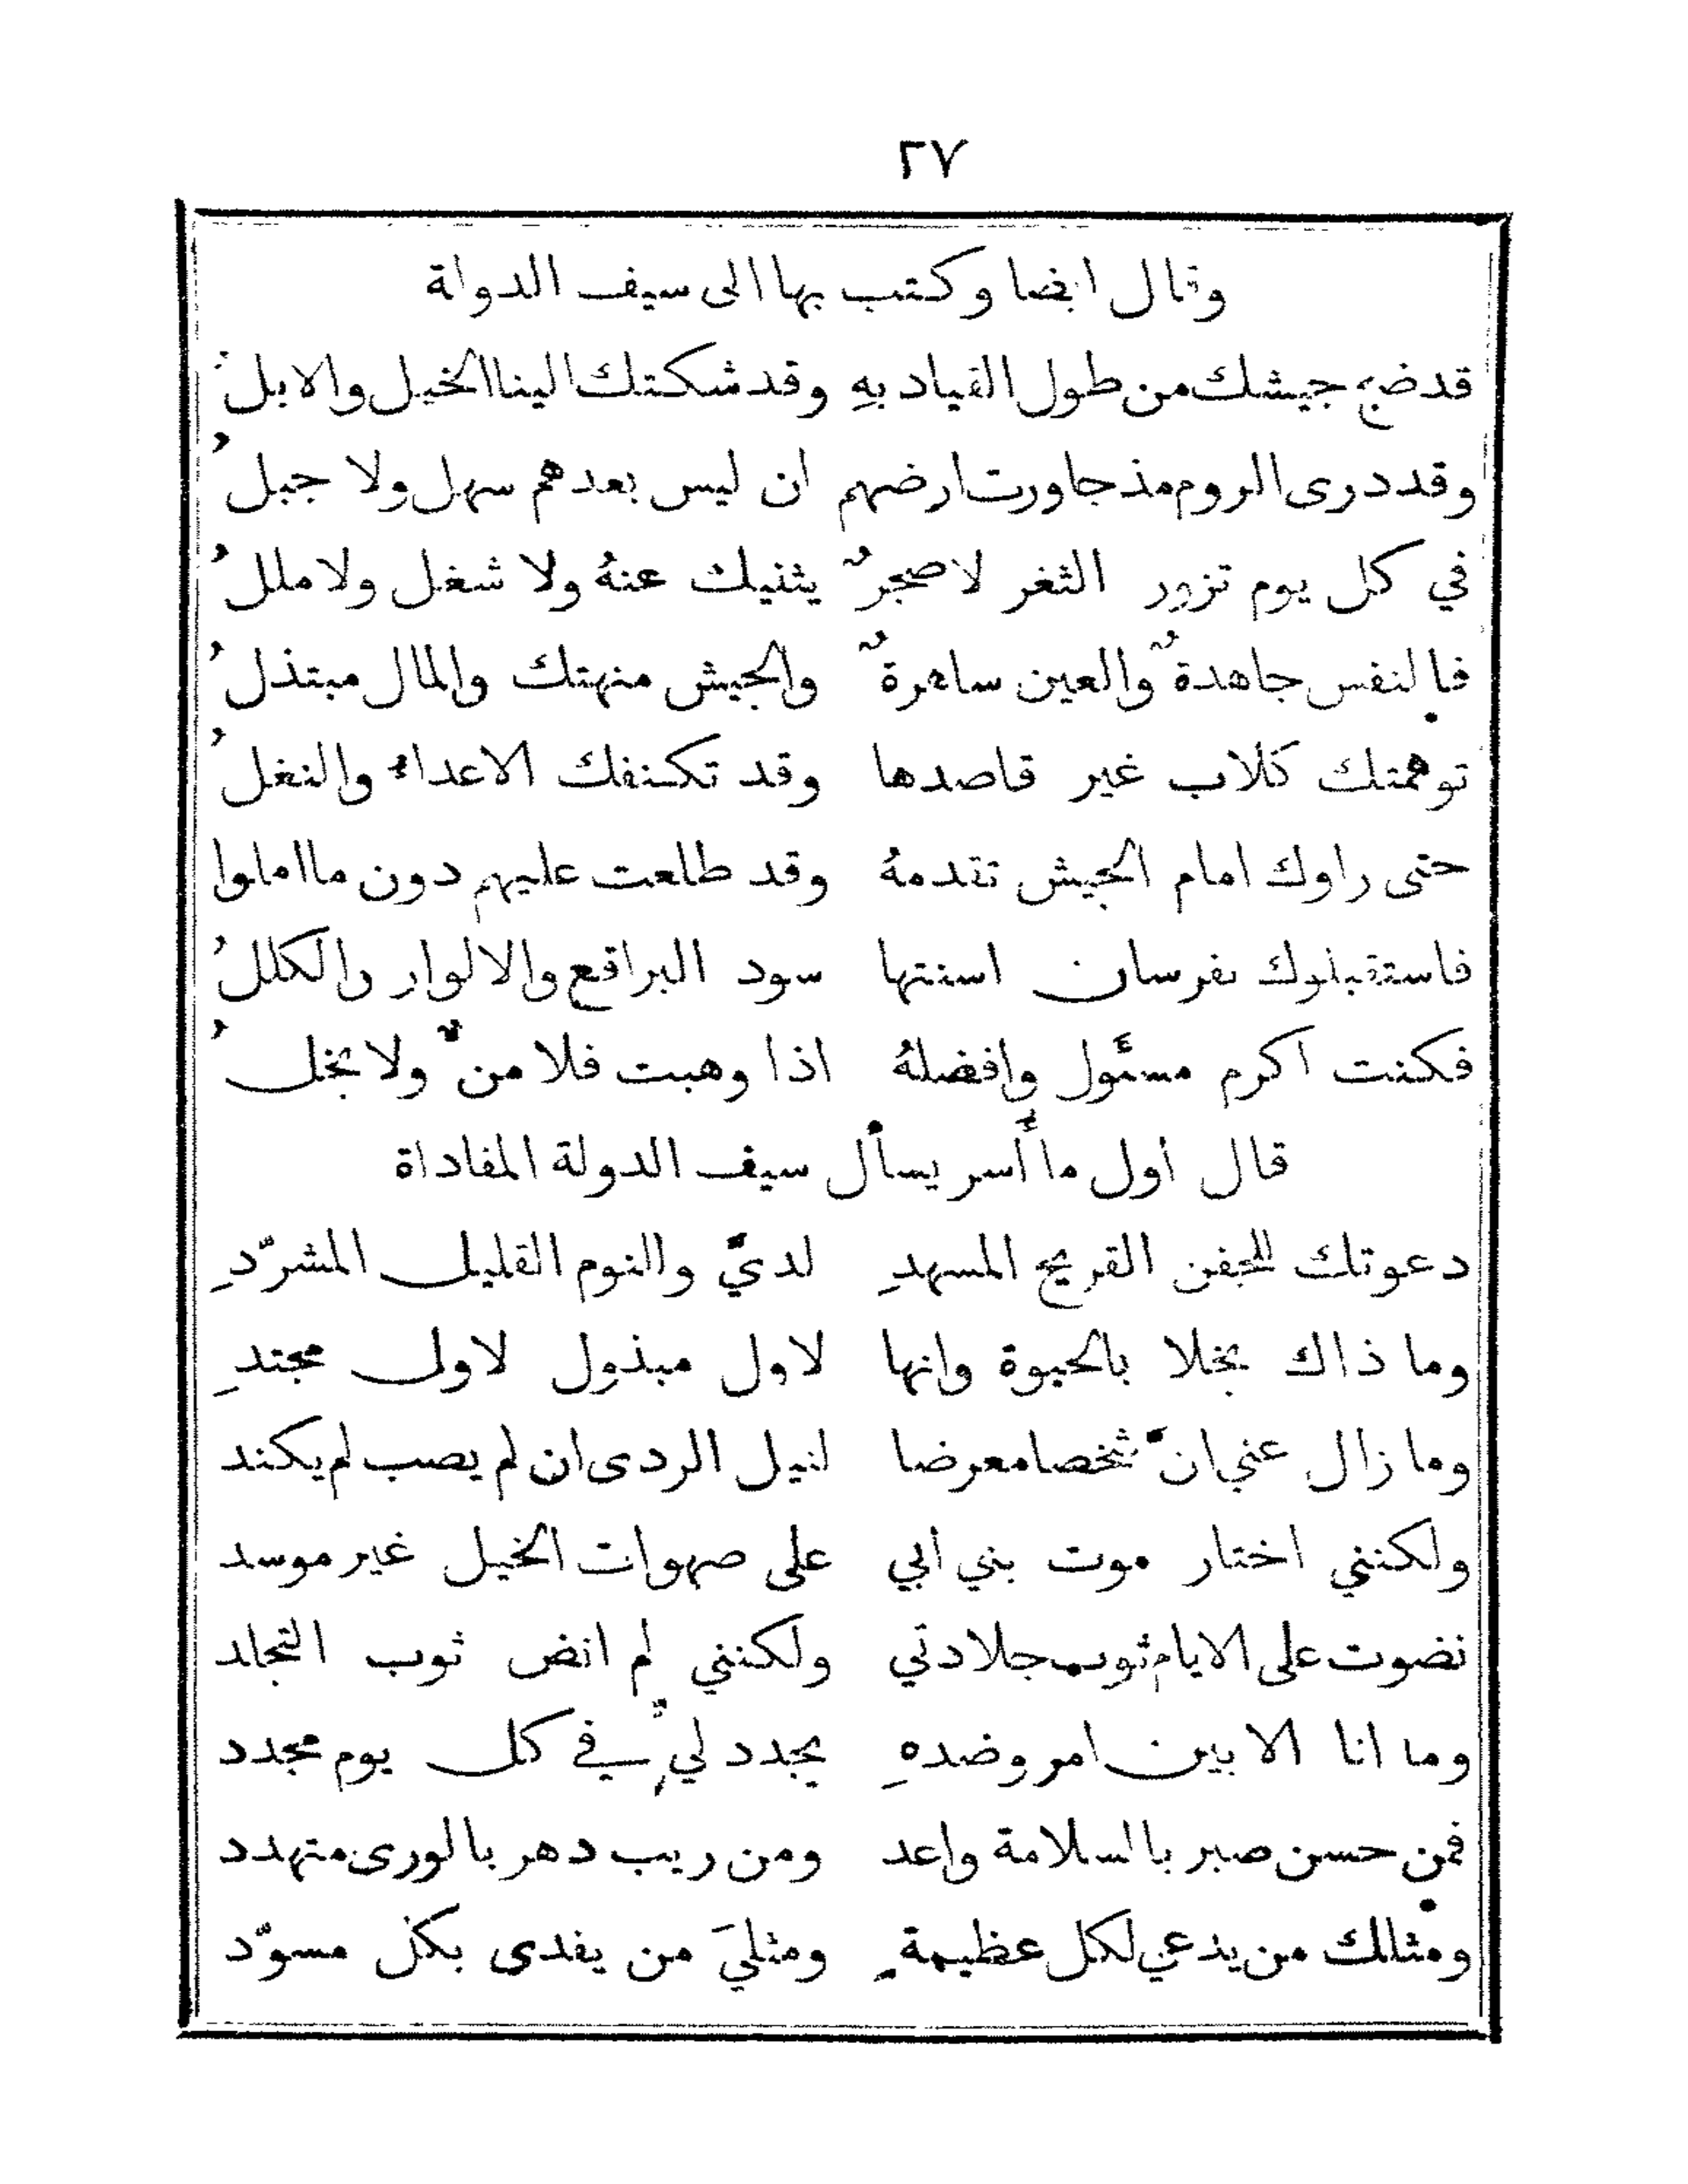 ٢٧
وقال ايضا وكتب بها الى سيف الدولة
قد ضج جيشك من طول القياد بهِ وقد شكتك الينا الخيل والابلُ
وقد درى الروم مذ جاورت ارضهم ان ليس بعدهم سهل ولا جبلُ
في كل يوم تزور الثغر لا ضجرٌ يثنيك عنهُ ولا شغل ولا مللُ
فالنفس جاهدة ٌ والعين ساهرةٌ والجيش منهتك والمال مبتذلُ
توهمتك كلاب غير قاصدها وقد تكنفك الاعداء والنغلُ
حتى راوك امام الجيش تقدمهُ وقد طلعت عليهم دون ما املوا
فاستقبلوك بفرسان اسنتها سود البراقع والالوار والكللُ
فكنت اكرم مسئول وافضلهُ اذا وهبت فلا منٌّ ولا بخلُ
قال اول ما أُسر يسأل سيف الدولة المفاداة
دعوتك للجفن القريح المسهدِ لديَّ والنوم القليل المشرّدِ
وما ذاك بخلا بالحيوة وانها لاول مبذول لاول مجتدِ
وما زال عني انَّ شخصا معرضا لنيل الردى ان لم يصب لم يكند
ولكنني اختار موت بني ابي على صهوات الخيل غير موسد
نضوت على الايام ثوب جلادتي ولكنني لم انض ثوب التجلد
وما انا الا بين امر وضدهِ يجدد لي في كل يوم مجدد
فمن حسن صبر بالسلامة واعد ومن ريب دهر بالورى متهدد
ومثلك من يدعي لكل عظيمةٍ ومثليَ من يفدى بكل مسوّد